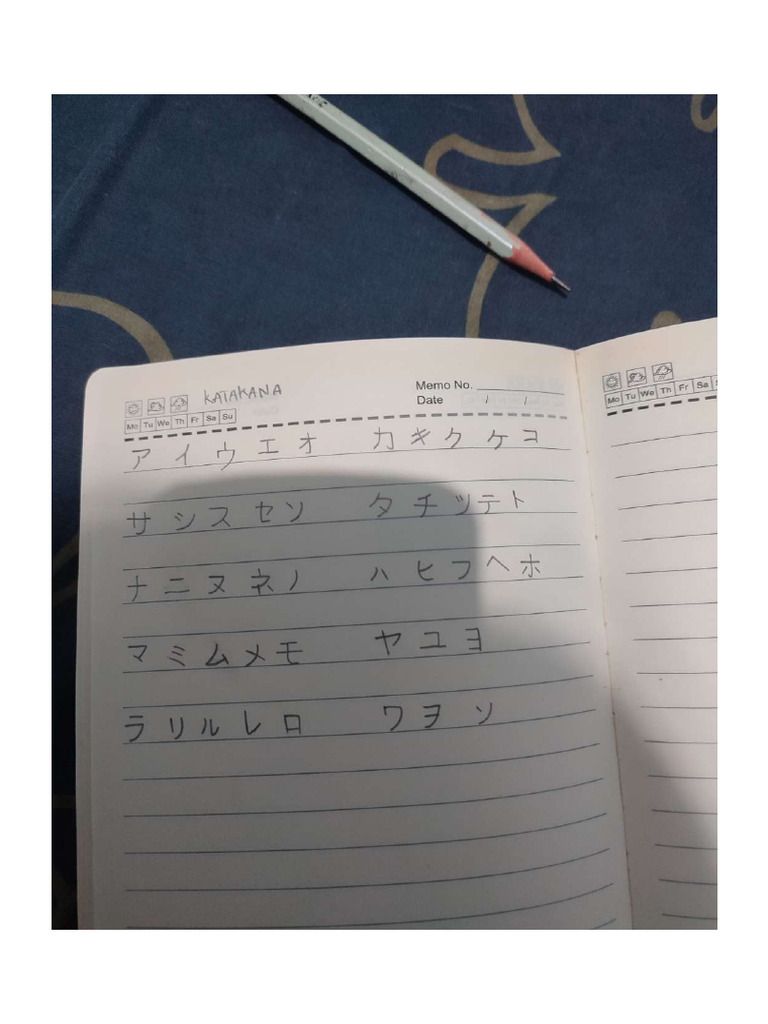 KATAKANA
Memo No.
Date / /
Mo Tu We Th Fr Sa Su
Mo Tu We Th Fr Sa
アイウエオ カキクケコ
サシスセソ タチツテト
ナニヌネノ ハヒフヘホ
マミムメモ ヤユヨ
ラリルレロ ワヲソ